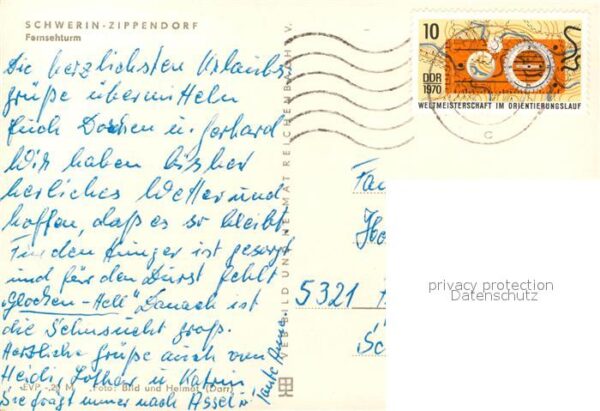 SCHWERIN-ZIPPENDORF
Fernsehturm
Die herzlichsten Urlaubs
grüße übermitteln
Euch Dorchen u. Gerhard
Wir haben bisher
herliches Wetter und
hoffen, daß es so bleibt
Für den Hunger ist gesorgt
und für den Durst fehlt
"Glocken-Hell" Danach ist
die Sehnsucht groß.
Herzliche Grüße auch von
Heidi, Lothar u. Katrin
Sie frägt immer nach Assel
Tante
EVP -,20 M Foto: Bild und Heimat (Darr)
VERLAG BILD UND HEIMAT REICHENBACH I. V.
10
DDR
1970
WELTMEISTERSCHAFT IM ORIENTIERUNGSLAUF
c
Fa
5321
privacy protection
Datenschutz